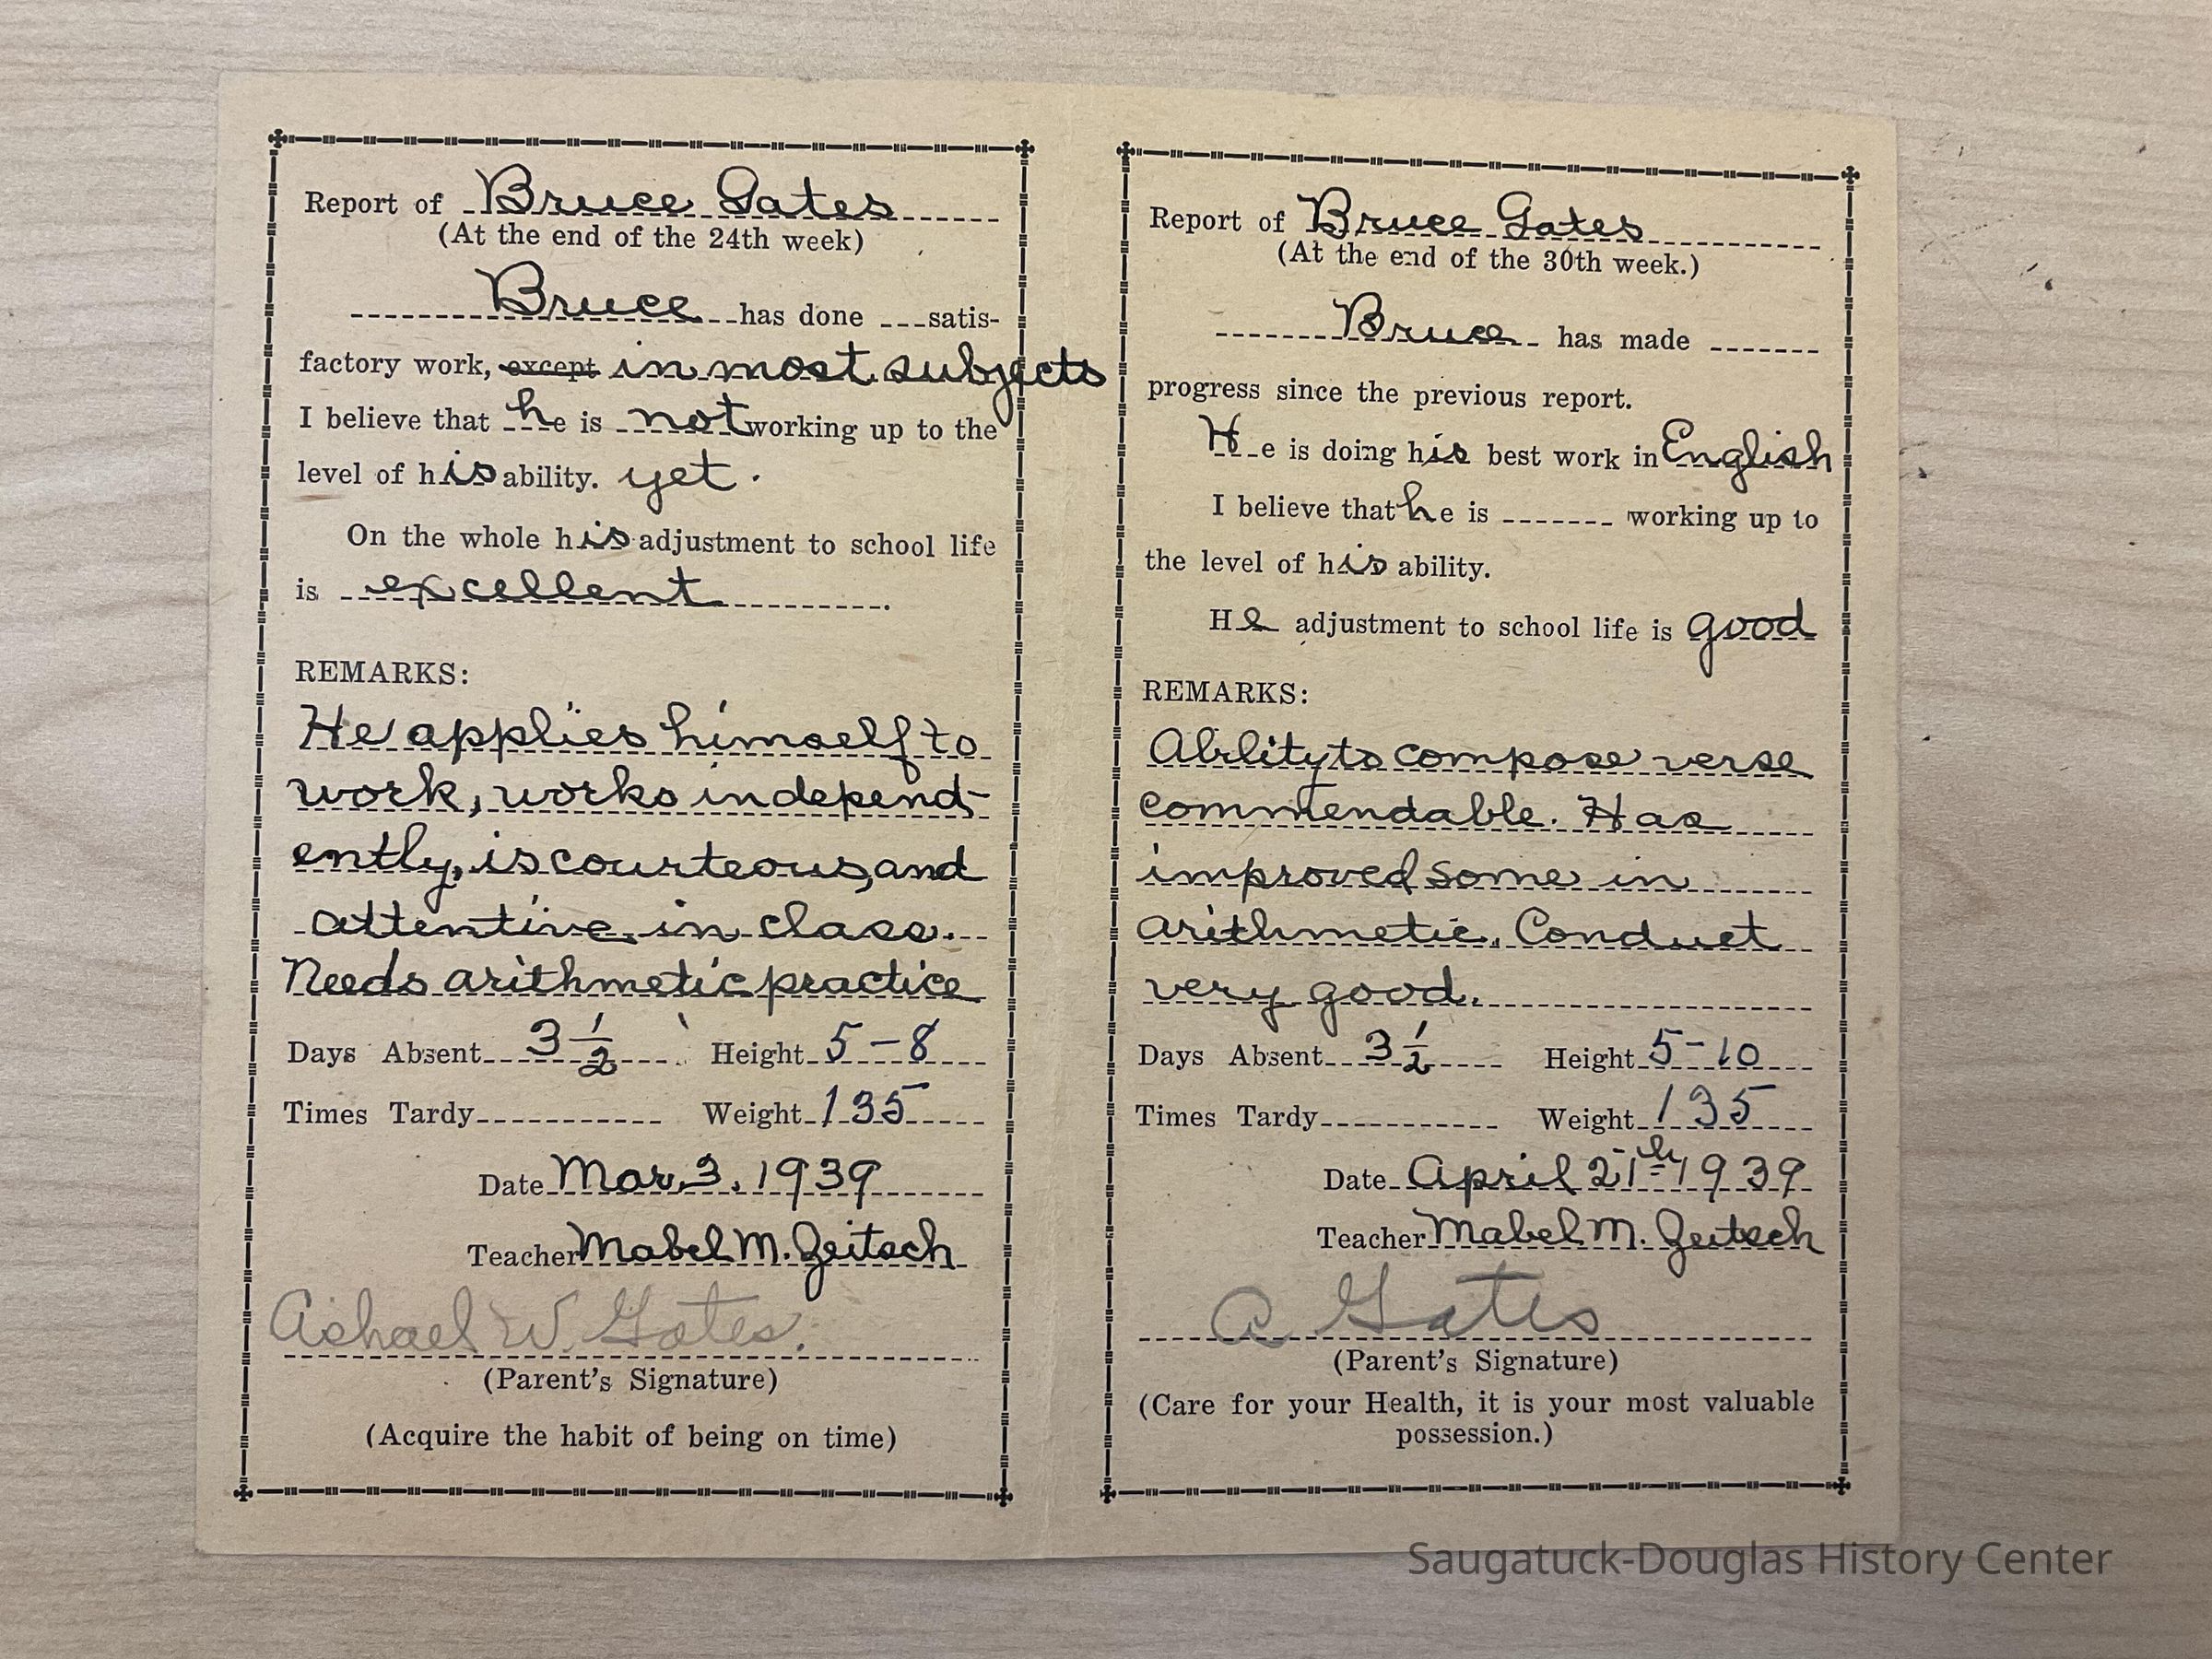 Report of Bruce Gates
(At the end of the 24th week)
Bruce has done satis-
factory work, except in most subjects
I believe that he is not working up to the
level of his ability. yet.
On the whole his adjustment to school life
is excellent.
REMARKS:
He applies himself to
work, works independ-
ently, is courteous, and
attentive in class.
Needs arithmetic practice
Days Absent 3 1/2 Height 5-8
Times Tardy Weight 135
Date Mar. 3, 1939
Teacher Mabel M. Zeitsch
Ashael W. Gates.
(Parent's Signature)
(Acquire the habit of being on time)
Report of Bruce Gates
(At the end of the 30th week.)
Bruce has made
progress since the previous report.
He is doing his best work in English
I believe that he is working up to
the level of his ability.
He adjustment to school life is good
REMARKS:
Ability to compose verse
commendable. Has
improved some in
arithmetic. Conduct
very good.
Days Absent 3 1/2 Height 5-10
Times Tardy Weight 135
Date April 21th 1939
Teacher Mabel M. Zeitsch
A Gates
(Parent's Signature)
(Care for your Health, it is your most valuable
possession.)
Saugatuck-Douglas History Center